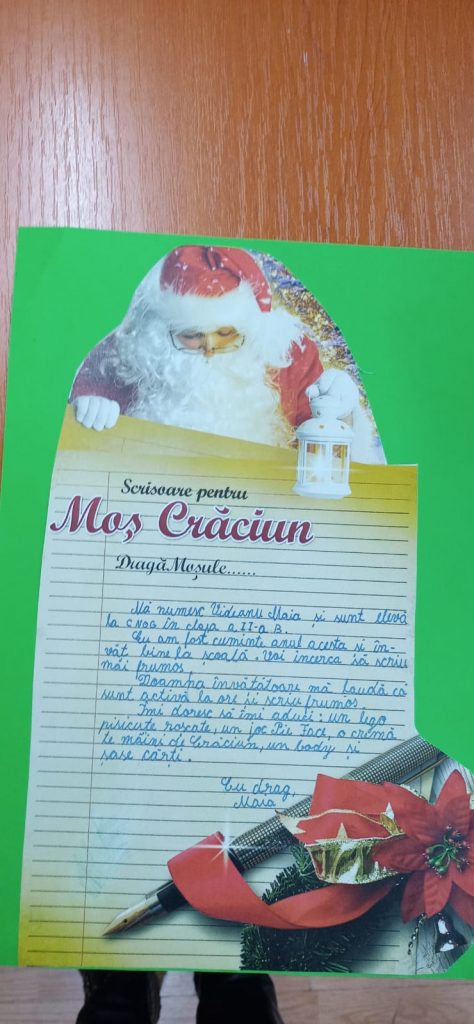 Scrisoare pentru
Moș Crăciun
Dragă Moșule......
Mă numesc Videanu Maia și sunt elevă
la CNOG în clasa a II-a B.
Eu am fost cuminte anul acesta și în-
văț bine la școală. Voi încerca să scriu
mai frumos.
Doamna învățătoare mă laudă că
sunt activă la ore și scriu frumos.
Îmi doresc să îmi aduci: un lego
pisicuțe roșcate, un joc Pie Face, o cremă
te mâini de Crăciun, un body și
șase cărți.
Cu drag,
Maia